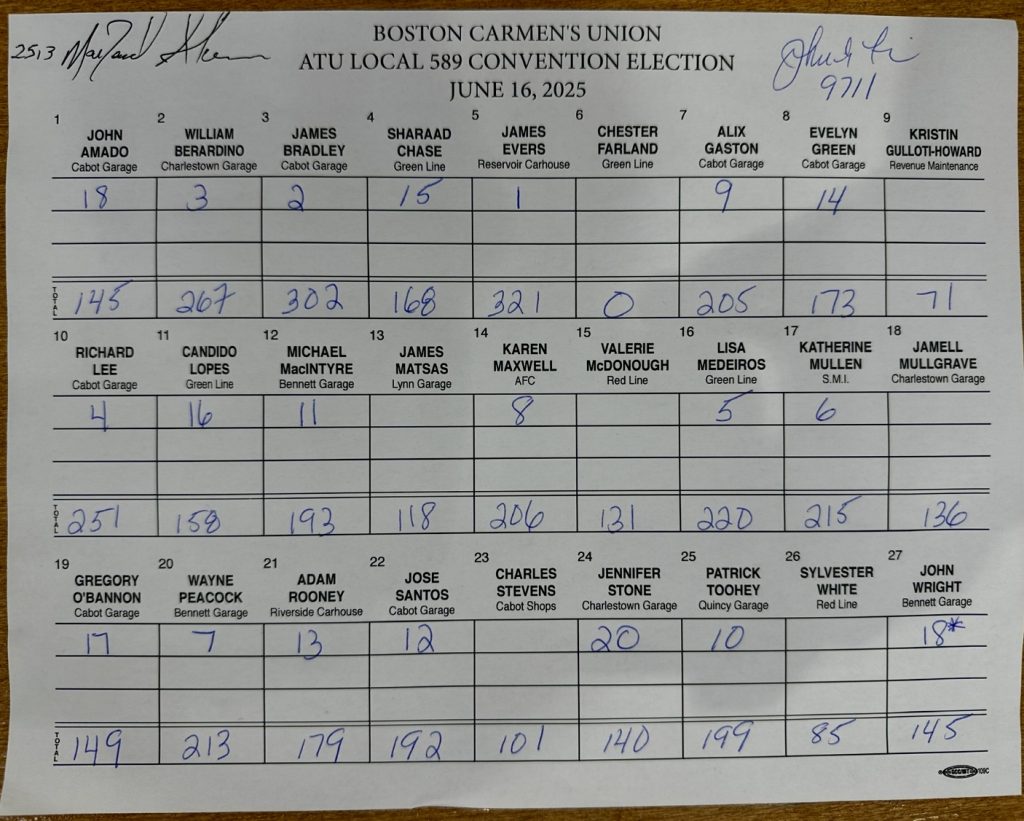 BOSTON CARMEN'S UNION
ATU LOCAL 589 CONVENTION ELECTION
JUNE 16, 2025
2513
9711
1 2 3 4 5 6 7 8 9
JOHN WILLIAM JAMES SHARAAD JAMES CHESTER ALIX EVELYN KRISTIN
AMADO BERARDINO BRADLEY CHASE EVERS FARLAND GASTON GREEN GULLOTI-HOWARD
Cabot Garage Charlestown Garage Cabot Garage Green Line Reservoir Carhouse Green Line Cabot Garage Cabot Garage Revenue Maintenance
18 3 2 15 1 9 14
TOTAL 145 267 302 168 321 0 205 173 71
10 11 12 13 14 15 16 17 18
RICHARD CANDIDO MICHAEL JAMES KAREN VALERIE LISA KATHERINE JAMELL
LEE LOPES MacINTYRE MATSAS MAXWELL McDONOUGH MEDEIROS MULLEN MULLGRAVE
Cabot Garage Green Line Bennett Garage Lynn Garage AFC Red Line Green Line S.M.I. Charlestown Garage
4 16 11 8 5 6
TOTAL 251 158 193 118 206 131 220 215 136
19 20 21 22 23 24 25 26 27
GREGORY WAYNE ADAM JOSE CHARLES JENNIFER PATRICK SYLVESTER JOHN
O'BANNON PEACOCK ROONEY SANTOS STEVENS STONE TOOHEY WHITE WRIGHT
Cabot Garage Bennett Garage Riverside Carhouse Cabot Garage Cabot Shops Charlestown Garage Quincy Garage Red Line Bennett Garage
17 7 13 12 20 10 18*
TOTAL 149 213 179 192 101 140 199 85 145